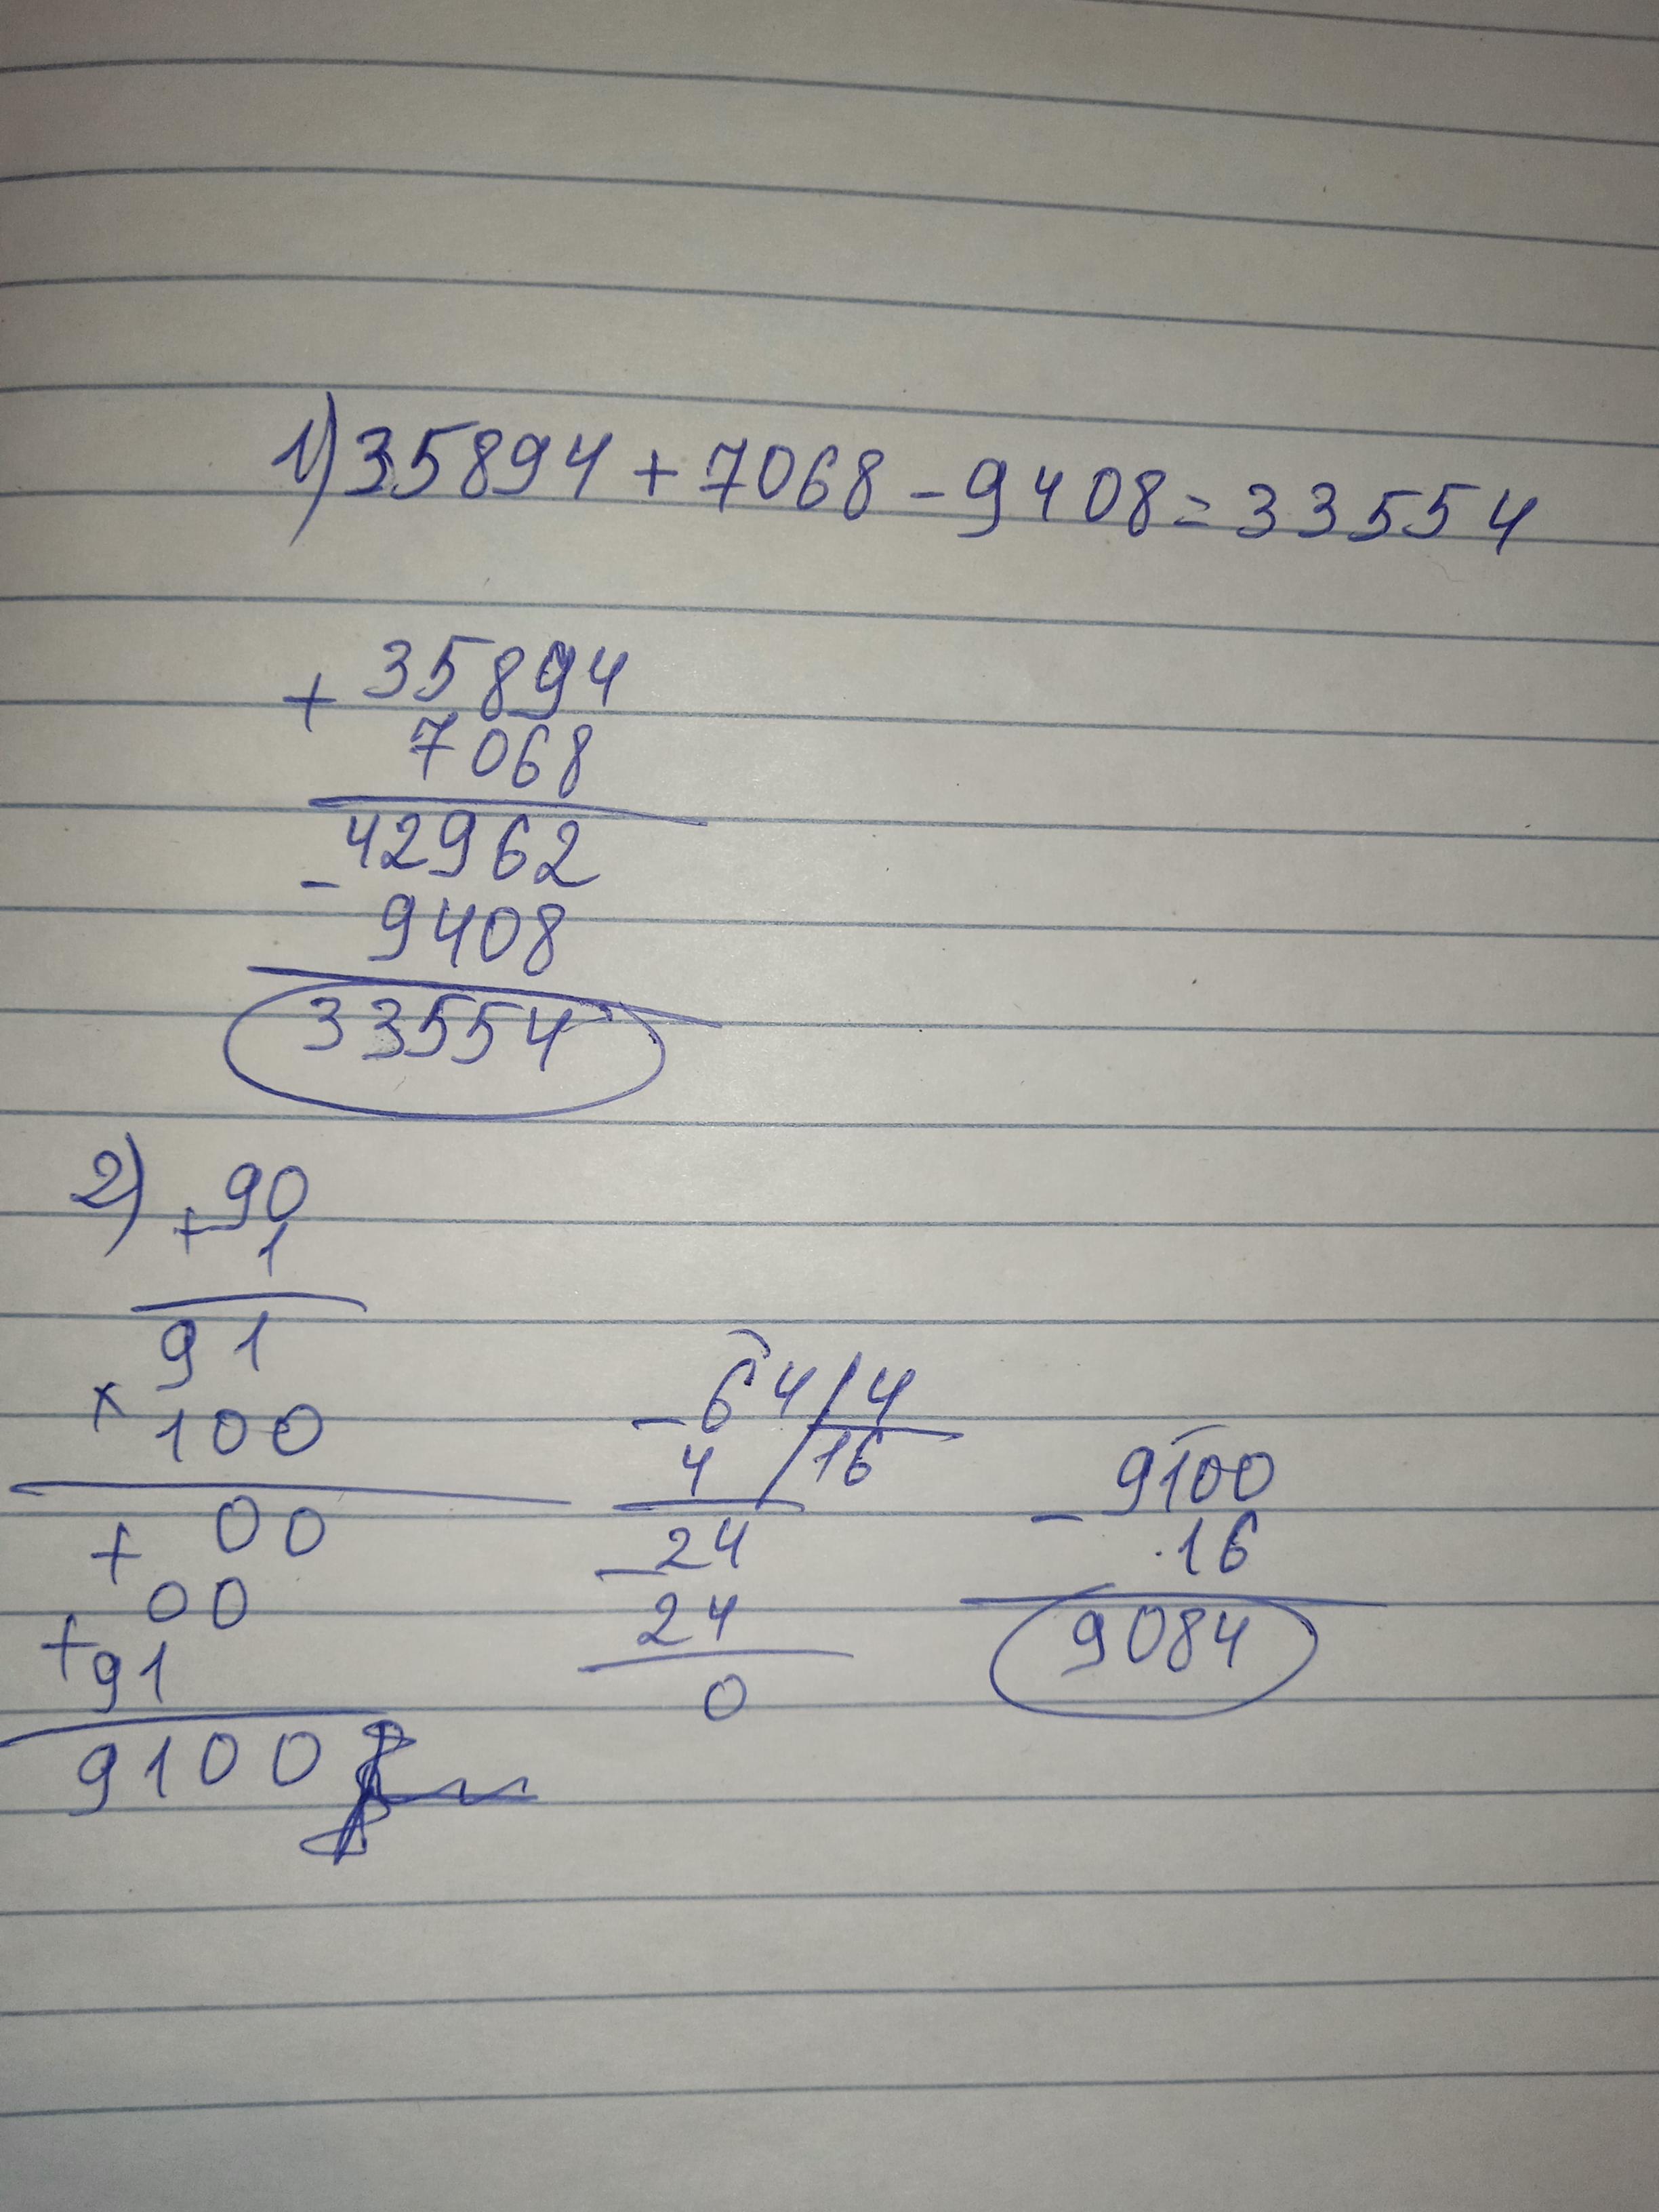 1) 35894 + 7068 - 9408 = 33554
+ 35894
7068
42962
- 9408
33554
2) + 90
1
91
× 100
00
+ 00
+ 91
9100
- 64 / 4
4 / 16
- 24
24
0
- 9100
16
9084